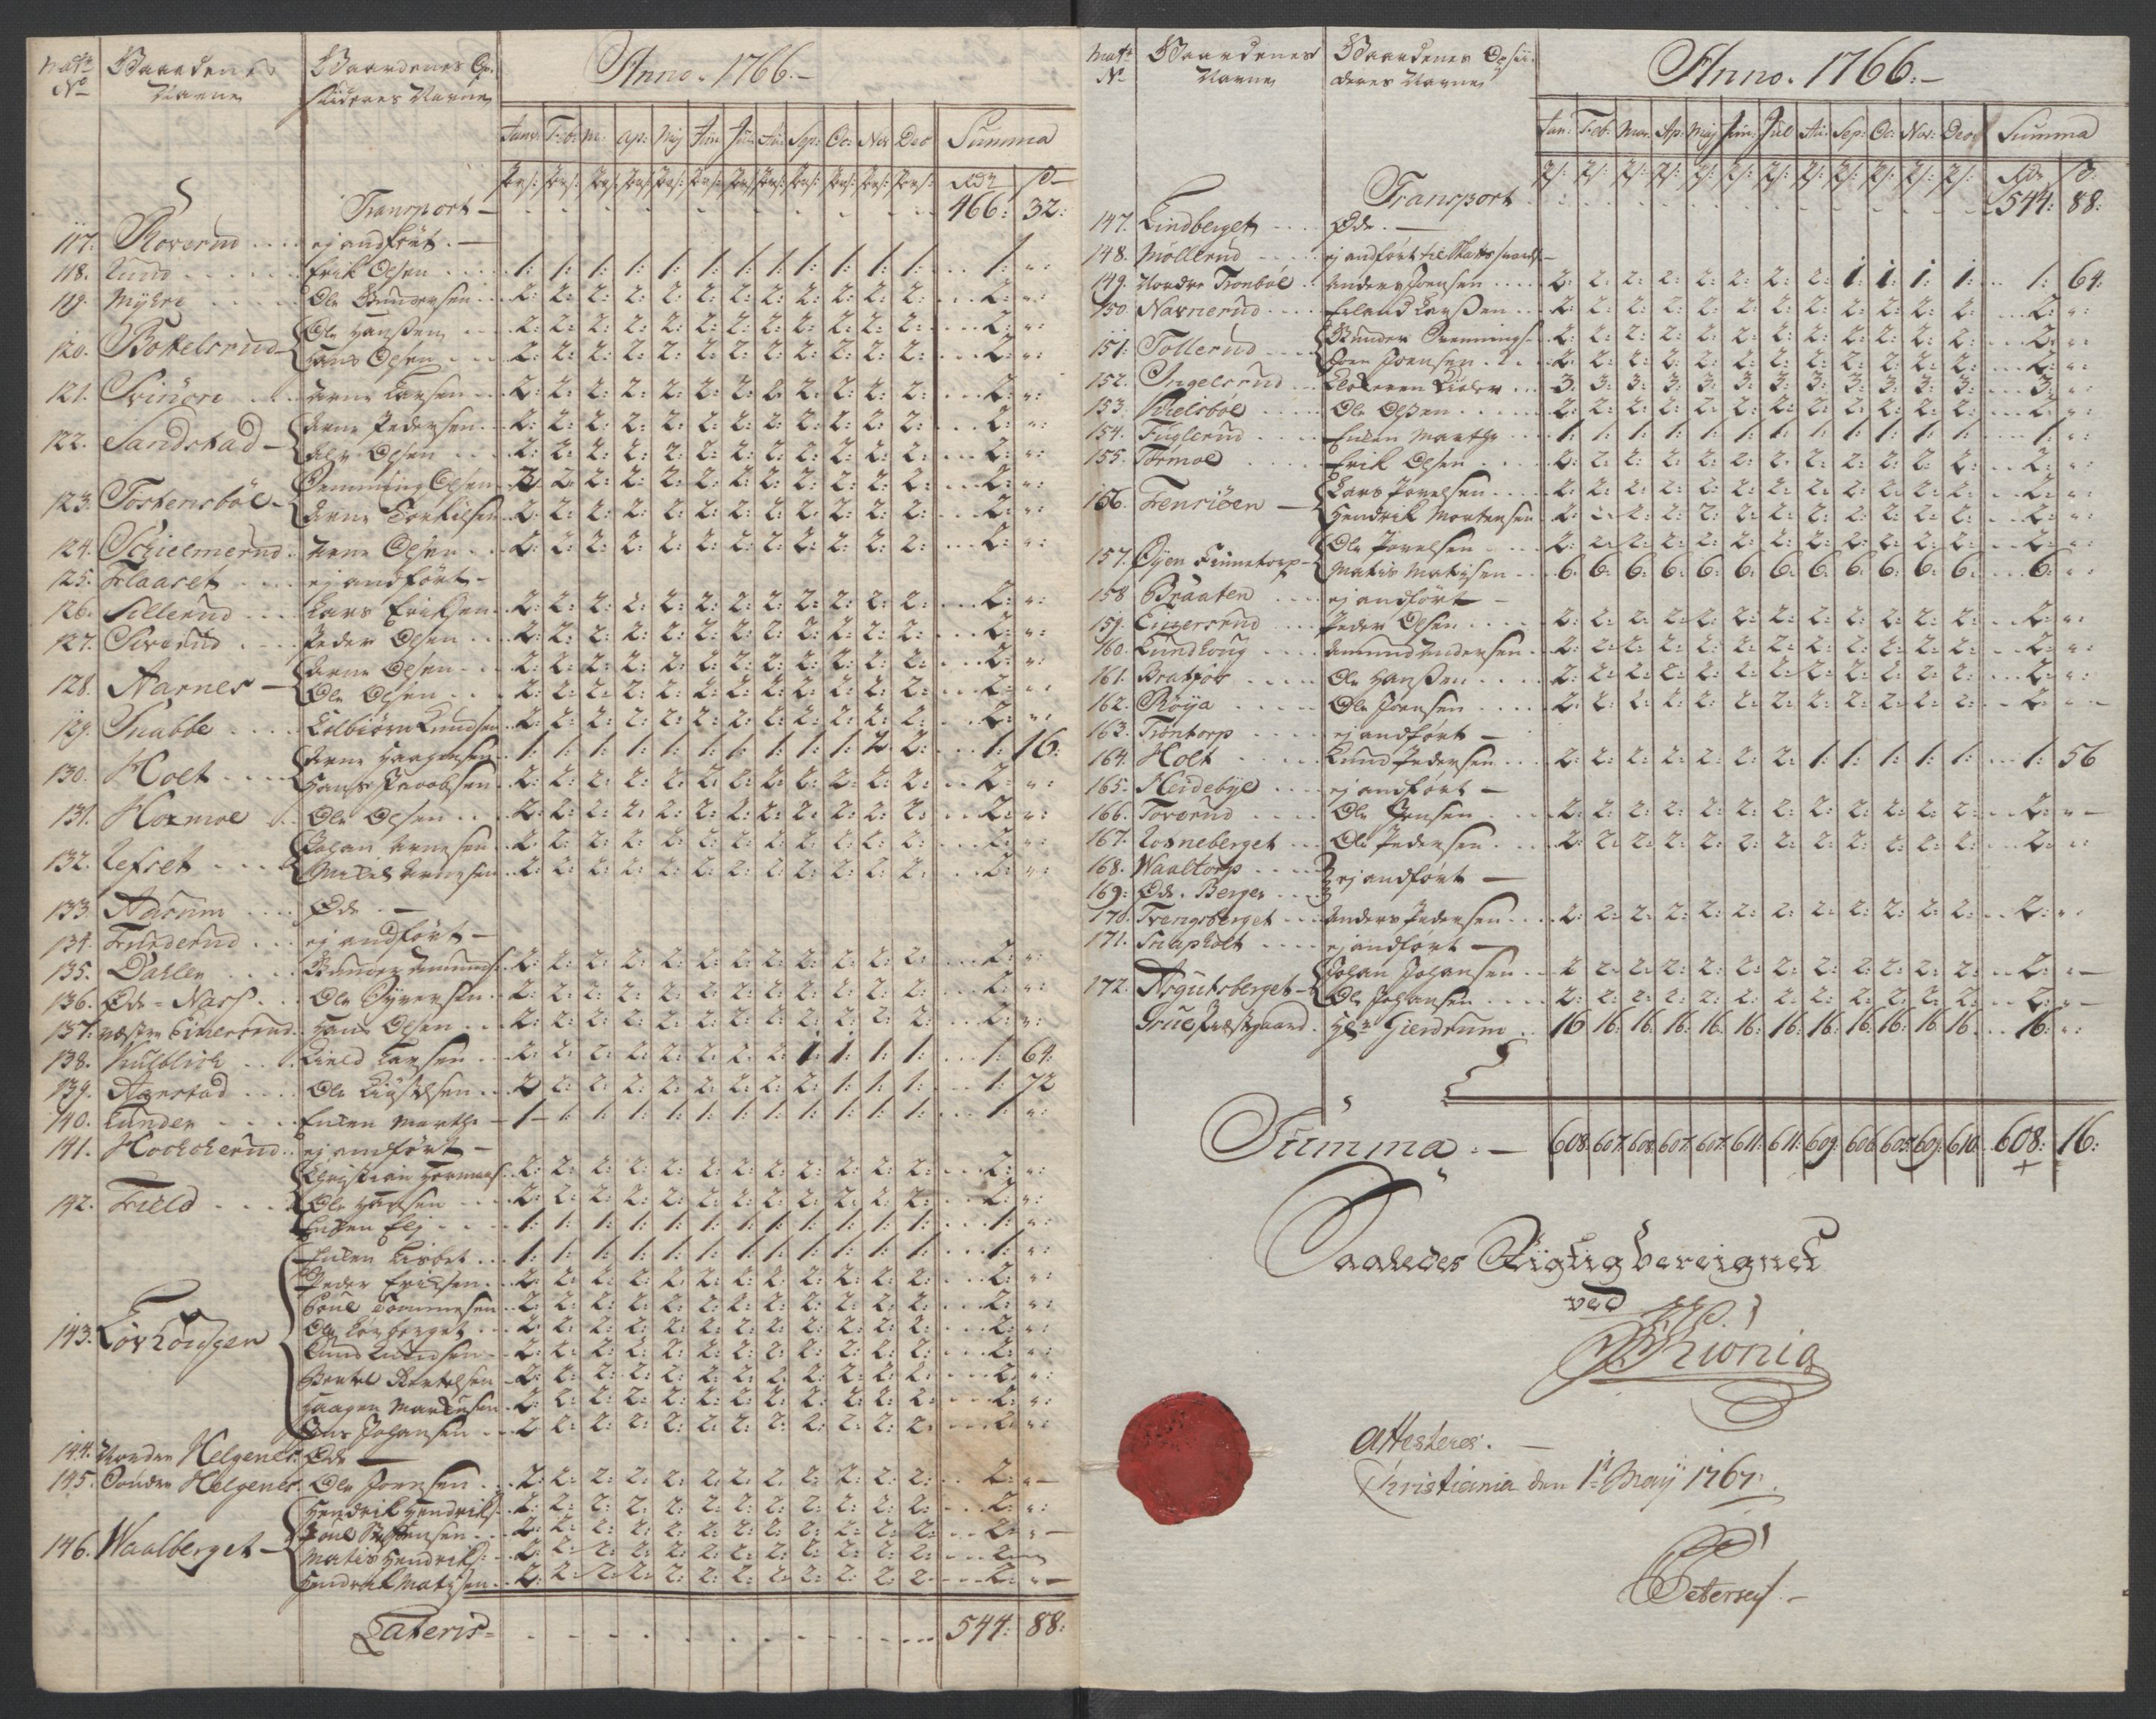 Mat: No
Gaardenes Navne
Gaardenes Opsidderes Navne
Anno. 1766.
Janv: Feb: M: Ap: Mij Jün: Jul: Au: Sep: Oc: Nov Dec Summa
Rdr ß
Transport 466: 32:
117. Roverud ej andført.
118. Lund Erik Olsen 1: 1: 1: 1: 1: 1: 1: 1: 1: 1: 1: 1: 1: ":
119. Myhre Ole Gundersen 2: 2: 2: 2: 2: 2: 2: 2: 2: 2: 2: 2: 2: ":
120. Bottelsrud Ole Hanßen 2: 2: 2: 2: 2: 2: 2: 2: 2: 2: 2: 2: 2: ":
Hans Olsen 2: 2: 2: 2: 2: 2: 2: 2: 2: 2: 2: 2: 2: ":
121. Arne Larsen 2: 2: 2: 2: 2: 2: 2: 2: 2: 2: 2: 2: 2: ":
122. Sandstad Arne Pedersen 2: 2: 2: 2: 2: 2: 2: 2: 2: 2: 2: 2: 2: ":
Olsen 2: 2: 2: 2: 2: 2: 2: 2: 2: 2: 2: 2: 2: ":
123. Tostensbøl Svenning Olsen 2 2: 2: 2: 2: 2: 2: 2: 2: 2: 2: 2: 2: ":
Arne Torkilsen 2: 2: 2: 2: 2: 2: 2: 2: 2: 2: 2: 2: 2: ":
124. Schielmerud Arne Olsen 2: 2: 2: 2: 2: 2: 2: 2: 2: 2: 2: 2: 2: ":
125. Flaaret ej andført
126. Sillerud Lars Eriksen 2: 2: 2: 2: 2: 2: 2: 2: 2: 2: 2: 2: 2: ":
127. Siverud Peder Olsen 2: 2: 2: 2: 2: 2: 2: 2: 2: 2: 2: 2: 2: ":
128. Aarnes Arne Olsen 2: 2: 2: 2: 2: 2: 2: 2: 2: 2: 2: 2: 2: ":
Ole Olsen 2: 2: 2: 2: 2: 2: 2: 2: 2: 2: 2: 2: 2: ":
129. Snabbe Kolbiørn Knudsen 2: 2: 2: 2: 2: 2: 2: 2: 2: 2: 2: 2: 2: ":
130. Holt Arne Haagensen 1: 1: 1: 1: 1: 1: 1: 1: 1: 1: 2 2: 1: 16:
Hans Jacobsen 2: 2: 2: 2: 2: 2: 2: 2: 2: 2: 2: 2: 2: ":
131. Hormoe Ole Olsen 2: 2: 2: 2: 2: 2: 2: 2: 2: 2: 2: 2: 2: ":
132. Lefset Johan Arnesen 2: 2: 2: 2: 2: 2: 2: 2: 2: 2: 2: 2: 2: ":
Mikel Arnesen 2: 2: 2: 2: 2: 2: 2: 2: 2: 2: 2: 2: 2: ":
133. Aasum Øde
134. Funderud ej andført
135. Dahlen Gunder Amunds: 2: 2: 2: 2: 2: 2: 2: 2: 2: 2: 2: 2: 2: ":
136. Øde-Næss Ole Syversen 2: 2: 2: 2: 2: 2: 2: 2: 2: 2: 2: 2: 2: ":
137. Hans Olsen 2: 2: 2: 2: 2: 2: 2: 2: 2: 2: 2: 2: 2: ":
138. Kield Larsen 2: 2: 2: 2: 2: 2: 2: 2: 1: 1: 1: 1: 1: 64:
139. Agnestad Ole 2: 2: 2: 2: 2: 2: 2: 2: 2: 1: 1: 1: 1: 72
140. Lunden Enken Marthe 1 1: 1: 1: 1: 1: 1: 1: 1: 1: 1: 1: 1: ":
141. Hochcherud ej andført
142. Field Christian Hermans: 2: 2: 2: 2: 2: 2: 2: 2: 2: 2: 2: 2: 2: ":
Ole Hansen 2: 2: 2: 2: 2: 2: 2: 2: 2: 2: 2: 2: 2: ":
Enken Eli 1: 1: 1: 1: 1: 1: 1: 1: 1: 1: 1: 1: 1: ":
143. Løvhougen Enken Lisbet 1: 1: 1: 1: 1: 1: 1: 1: 1: 1: 1: 1: 1: ":
Peder Eriksen 2: 2: 2: 2: 2: 2: 2: 2: 2: 2: 2: 2: 2: ":
Poul Tommesen 2: 2: 2: 2: 2: 2: 2: 2: 2: 2: 2: 2: 2: ":
Ole Løvberget 2: 2: 2: 2: 2: 2: 2: 2: 2: 2: 2: 2: 2: ":
Knud Knudsen 2: 2: 2: 2: 2: 2: 2: 2: 2: 2: 2: 2: 2: ":
Bertel Bertelsen 2: 2: 2: 2: 2: 2: 2: 2: 2: 2: 2: 2: 2: ":
Haagen Markusen 2: 2: 2: 2: 2: 2: 2: 2: 2: 2: 2: 2: 2: ":
Jens Johansen 2 2: 2: 2: 2: 2: 2: 2: 2: 2: 2: 2: 2: ":
144. Nordre Helgenes Øde
145. Søndre Helgenes Ole Joensen 2: 2: 2: 2: 2: 2: 2: 2: 2: 2: 2: 2: 2: "
146. Waalberget Hendrik Hendriks: 2: 2: 2: 2: 2: 2: 2: 2: 2: 2: 2: 2: 2: ":
Poul Steffensen 2: 2: 2: 2: 2: 2: 2: 2: 2: 2: 2: 2: 2: "
Matis Hendriks: 2: 2: 2: 2: 2: 2: 2: 2: 2: 2: 2: 2: 2
Hendrik Matisen 2: 2: 2: 2: 2: 2: 2: 2: 2: 2: 2: 2: 2: "
Lateris 544: 88:
Mat: No
Gaardenes Navne
Gaardenes Opsidderes Navne
Anno. 1766.
Jan: Feb: Mar: Ap: Maj Jun: Jul Au: Sep: Oc: Nov: Dec Summa
Rdr ß:
Transport 544: 88:
147. Lindberget Øde
148. Møllerud ej andført til Skatts svarelse
149. Nordre Tronbøl Anders Joensen 2: 2: 2: 2: 2: 2: 2: 2: 1: 1: 1: 1: 1: 64.
150. Navnerud Erland Larßen 2: 2: 2: 2: 2: 2: 2: 2: 2: 2: 2: 2: 2: ":
151. Tollerud Gunder Svennings: 2: 2: 2: 2: 2: 2: 2: 2: 2: 2: 2: 2: 2: ":
Joen Joensen 2: 2: 2: 2: 2: 2: 2: 2: 2: 2: 2: 2: 2: ":
152. Ingelsrud Klokkeren 3: 3: 3: 3: 3: 3: 3: 3: 3: 3: 3: 3: 3: ":
153. Skielsbøl Ole Olßen 2: 2: 2: 2: 2: 2: 2: 2: 2: 2: 2: 2: 2: ":
154. Fuglerud Enken Marthe 1: 1: 1: 1: 1: 1: 1: 1: 1: 1: 1: 1: 1: ":
155. Tormoe Erik Olsen 2: 2: 2: 2: 2: 2: 2: 2: 2: 2: 2: 2: 2: ":
156. Fenriöen Lars Povelsen 2: 2: 2: 2: 2: 2: 2: 2: 2: 2: 2: 2: 2: ":
Hendrik Mortensen 2: 2: 2: 2: 2: 2: 2: 2: 2: 2: 2: 2: 2: ":
157. Öyen Finnetorp Ole Povelsen 2: 2: 2: 2: 2: 2: 2: 2: 2: 2: 2: 2: 2: ":
Matis Matisen 6: 6: 6: 6: 6: 6: 6: 6: 6: 6: 6: 6: 6: ":
158 Braaten ej andført
159. Eugersrud Peder Olsen 2: 2: 2: 2: 2: 2: 2: 2: 2: 2: 2: 2: 2: ":
160. Lundhoug Amund Andersen 2: 2: 2: 2: 2: 2: 2: 2: 2: 2: 2: 2: 2: ":
161. Bratfos Ole Hanßen 2: 2: 2: 2: 2: 2: 2: 2: 2: 2: 2: 2: 2: ":
162. Röya Ole Joensen 2: 2: 2: 2: 2: 2: 2: 2: 2: 2: 2: 2: 2: "
163. Tröntorp ej andført
164. Holt Knud Pedersen 2: 2: 2: 2: 2: 2: 2: 1: 1: 1: 1: 1: 1: 56
165. Heidebye ej andført
166. Toverud Ole Jensen 2: 2: 2: 2: 2: 2: 2: 2: 2: 2: 2: 2: 2: "
167. Rosneberget Ole Pedersen 2: 2: 2: 2: 2: 2: 2: 2: 2: 2: 2: 2: 2: ":
168. Waaltorp ej andført
169: Øde. Berger
170. Trengsberget Anders Pedersen 2: 2: 2: 2: 2: 2: 2: 2: 2: 2: 2: 2: 2: ":
171. Snapholt ej andført
172. Asgutsberget Johan Johansen 2 2: 2: 2: 2: 2: 2: 2: 2: 2: 2: 2: 2: "
Ole Johansen 2: 2: 2: 2: 2: 2: 2: 2: 2: 2: 2: 2: 2: "
Grue Præstgaard Hr Gierdrum 16 16: 16: 16: 16: 16: 16: 16: 16: 16: 16: 16: 16: ":
Summa 608: 607: 608: 607: 607: 611: 611: 609: 606: 605: 609: 610 608: 16:
Saaledes Rigtig bereignet
ved
Attesteres.
Christiania den 1te Maij 1767.
Petersen